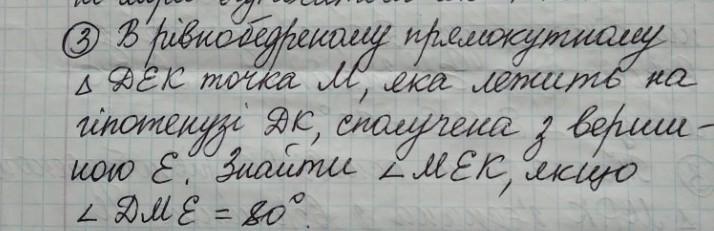 ③ В рівнобедреному прямокутному
△ DЕК точка М, яка лежить на
гіпотенузі DК, сполучена з верши-
ною Е. Знайти ∠МЕК, якщо
∠ DМЕ = 80°.